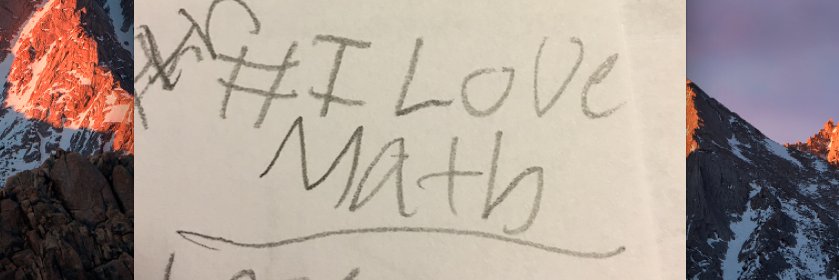 #I Love
Math